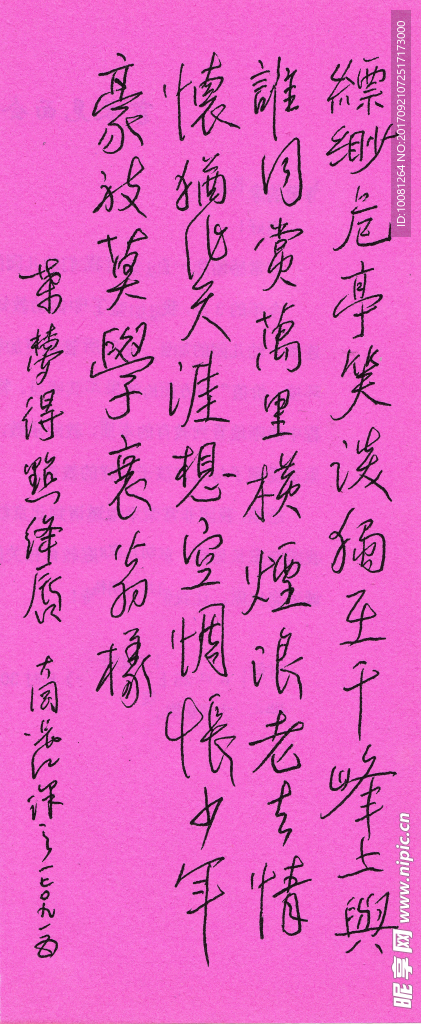 縹緲危亭笑談獨在千峰上與
誰同賞萬里橫煙浪老去情
懷猶作天涯想空惆悵少年
豪放莫學衰翁樣
葉夢得點絳唇
ID:10081264 NO:20170921072517173000
昵享网 www.nipic.cn